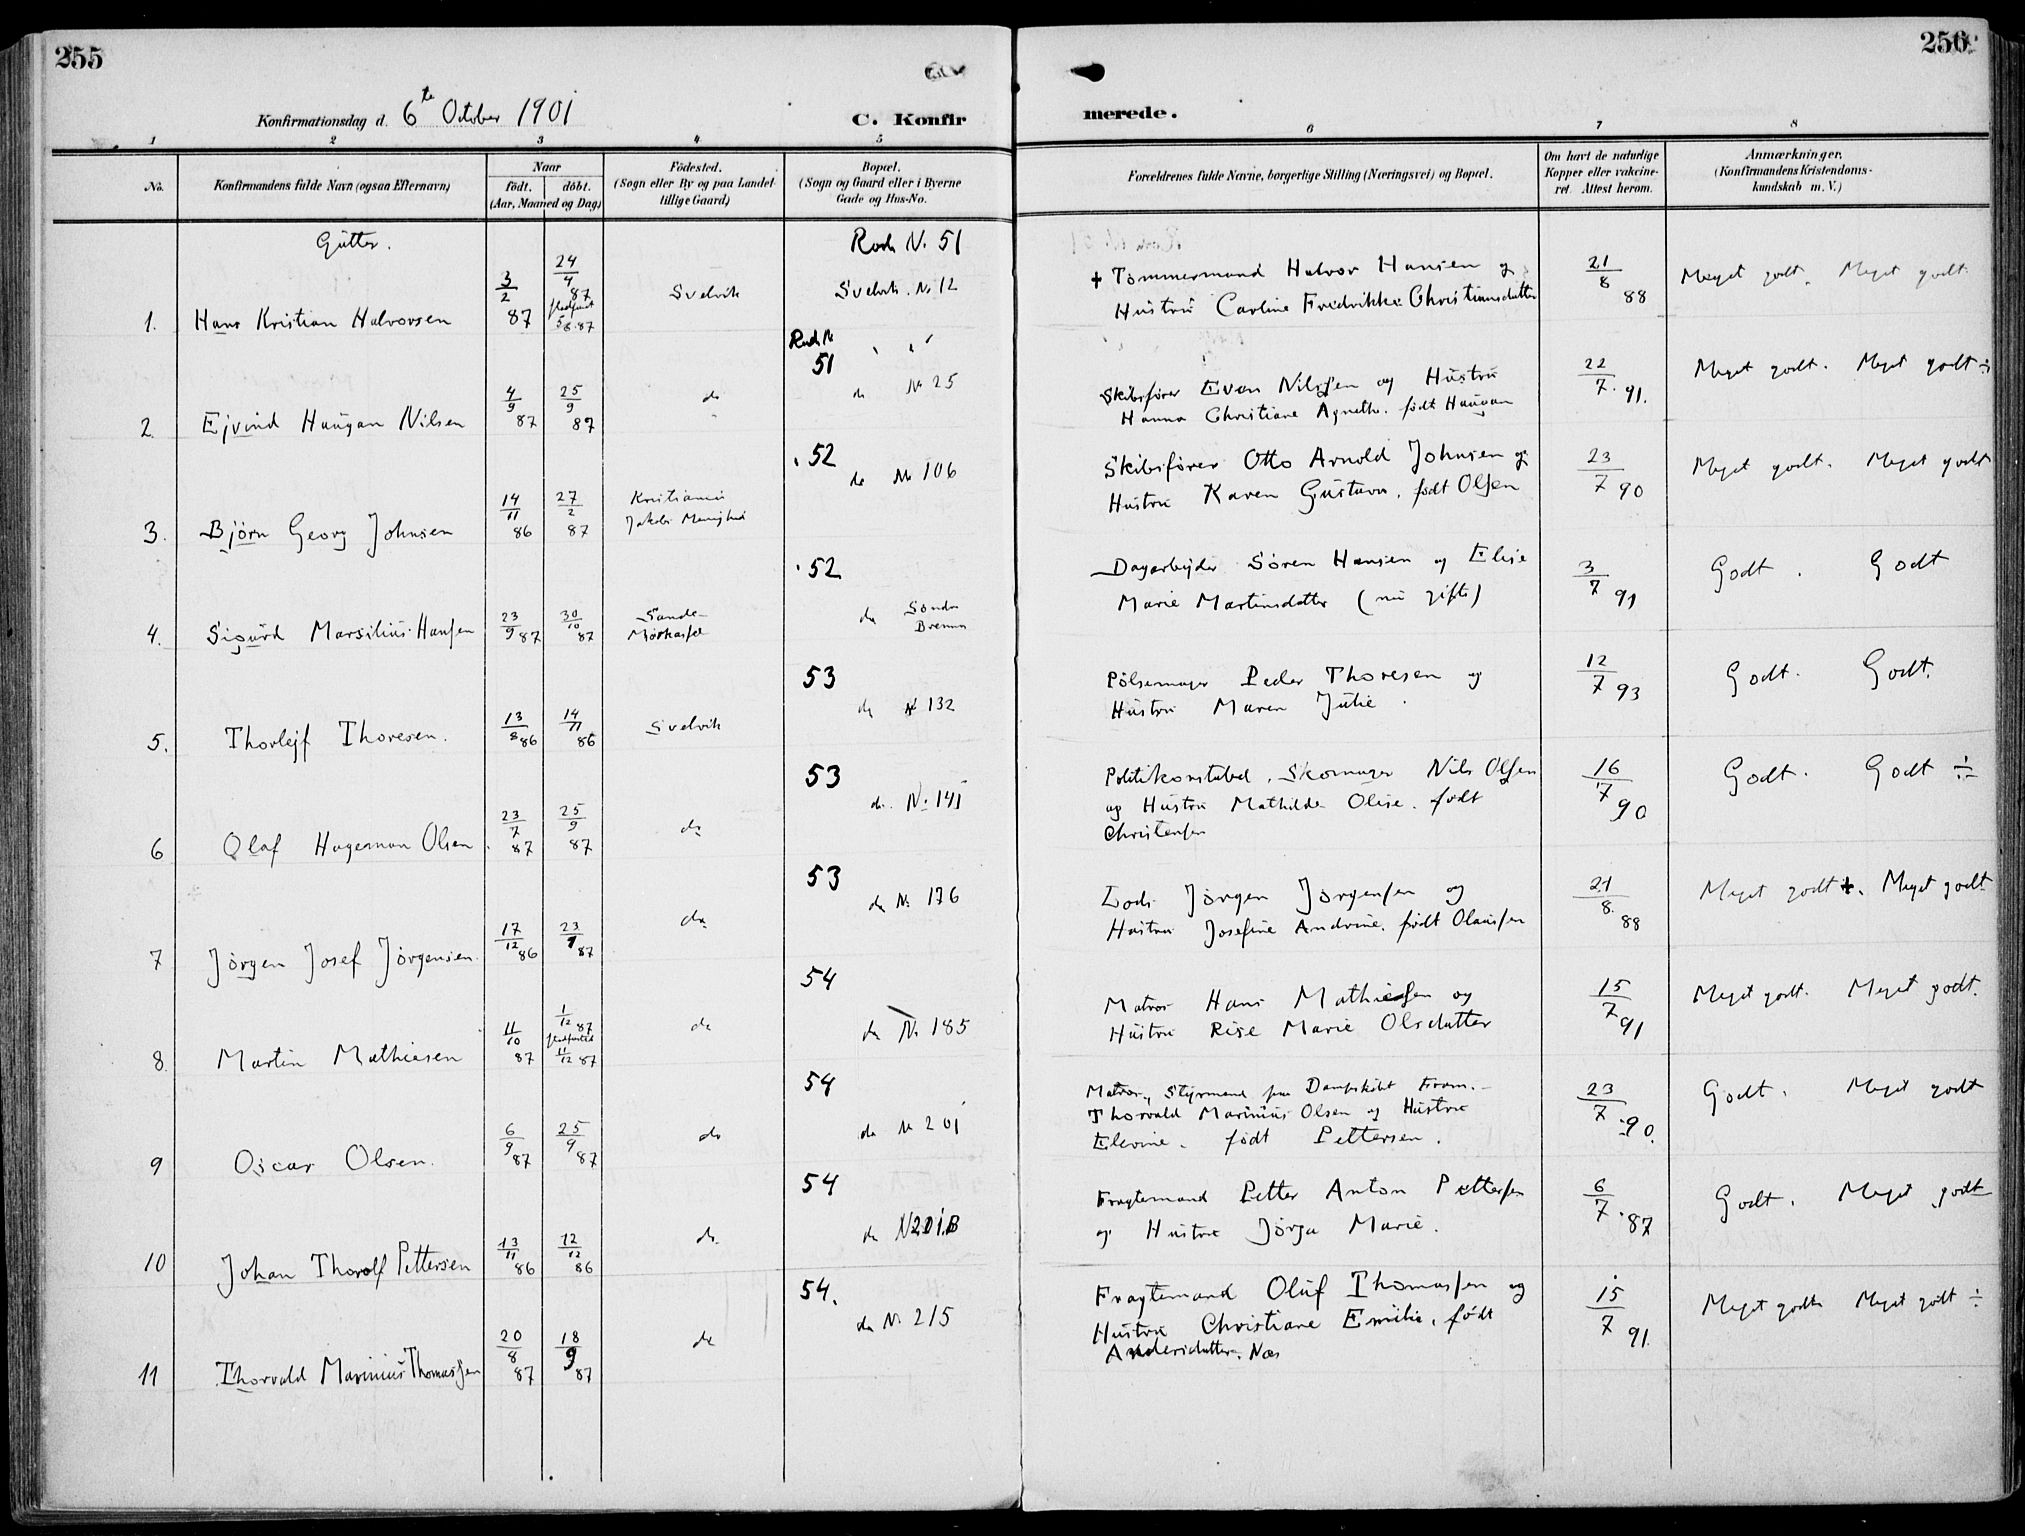 255
256
Konfirmationsdag d. 6te October 1901
C. Konfir
merede.
1 2 3 4 5 6 7 8
No.
Konfirmandens fulde Navn (ogsaa Efternavn)
Naar
födt. döbt.
(Aar, Maaned og Dag)
Födested.
(Sogn eller By og paa Landet
tillige Gaard)
Bopæl.
(Sogn og Gaard eller i Byerne
Gade og Hus-No.
Forældrenes fulde Navne, borgerlige Stilling (Næringsvei) og Bopæl.
Om havt de naturlige
Kopper eller vakcine-
ret. Attest herom.
Anmærkninger.
(Konfirmandens Kristendoms-
kundskab m. V.)
Gutter.
Rode N. 51
1. Hans Kristian Halvorsen
3/2 87
24/4 87
5/6 87
Svelvik
Svelvik. No 12
+ Tømmermand Halvor Hansen og
Hustru Caroline Fredrikke Christiansdatter
21/8 88
Meget godt. Meget godt.
Rode N
51
2. Ejvind Haugan Nilsen
4/9 87
25/9 87
do
do No 25
Skibsfører Even Nilssen og Hustru
Hanna Christiane Agnethe. født Haugan
22/7. 91.
Meget godt. Meget godt ÷
52
3. Bjørn Georg Johnsen
14/11 86
27/2 87
Kristiania
Jakobs Menighed
do No 106
Skibsfører Otto Arnold Johnsen og
Hustru Karen Gustava. født Olsen
23/7 90
Meget godt. Meget godt
52
4. Sigurd Marsilius Hansen
23/9 87
30/10 87
Sande
do Søndre
Brenna
Dagarbejder Søren Hansen og Elise
Marie Martinsdatter (nu gifte)
3/7 91
Godt. Godt
53
5. Thorlejf Thoresen.
13/8 86
14/11 86
Svelvik
do No 132
Pølsemager Peder Thoresen og
Hustru Maren Julie.
12/7 93
Godt. Godt.
53
6 Olaf Hageman Olsen
23/7 87
25/9 87
do
do. No 141
Politikonstabel. Skomager Nils Olsen
og Hustru Mathilde Olise. født
Christensen
16/7 90
Godt. Godt ÷
53
7 Jørgen Josef Jørgensen
17/12 86
23/1 87
do
do No 176
Lods Jørgen Jørgensen og
Hustru Josefine Andrine. født Olaussen
21/8. 88
Meget godt +. Meget godt
54
8. Martin Mathiesen
11/10 87
1/12 87
11/12 87
do
do No 185
Matros Hans Mathiesen og
Hustru Rise Marie Olsdatter
15/7 91
Meget godt. Meget godt.
54
9 Oscar Olsen.
6/9 87
25/9 87
do
do No 201
Matros, Styrmand paa Dampskibet Fram.
Thorvald Marinius Olsen og Hustru
Elevine. født Pettersen.
23/7. 90.
Godt. Meget godt
54
10 Johan Thorolf Pettersen
13/11 86
12/12 86
do
do N 201.B
Fragtemand Petter Anton Pettersen
og Hustru Jørga Marie.
6/7. 87
Godt. Meget godt
54.
11 Thorvald Marinius Thomassen
20/8 87
18/9 87
do
do No 215
Fragtemand Oluf Thomassen og
Hustru Christiane Emilie. født
Andersdatter. Næs
15/7 91
Meget godt. Meget godt ÷